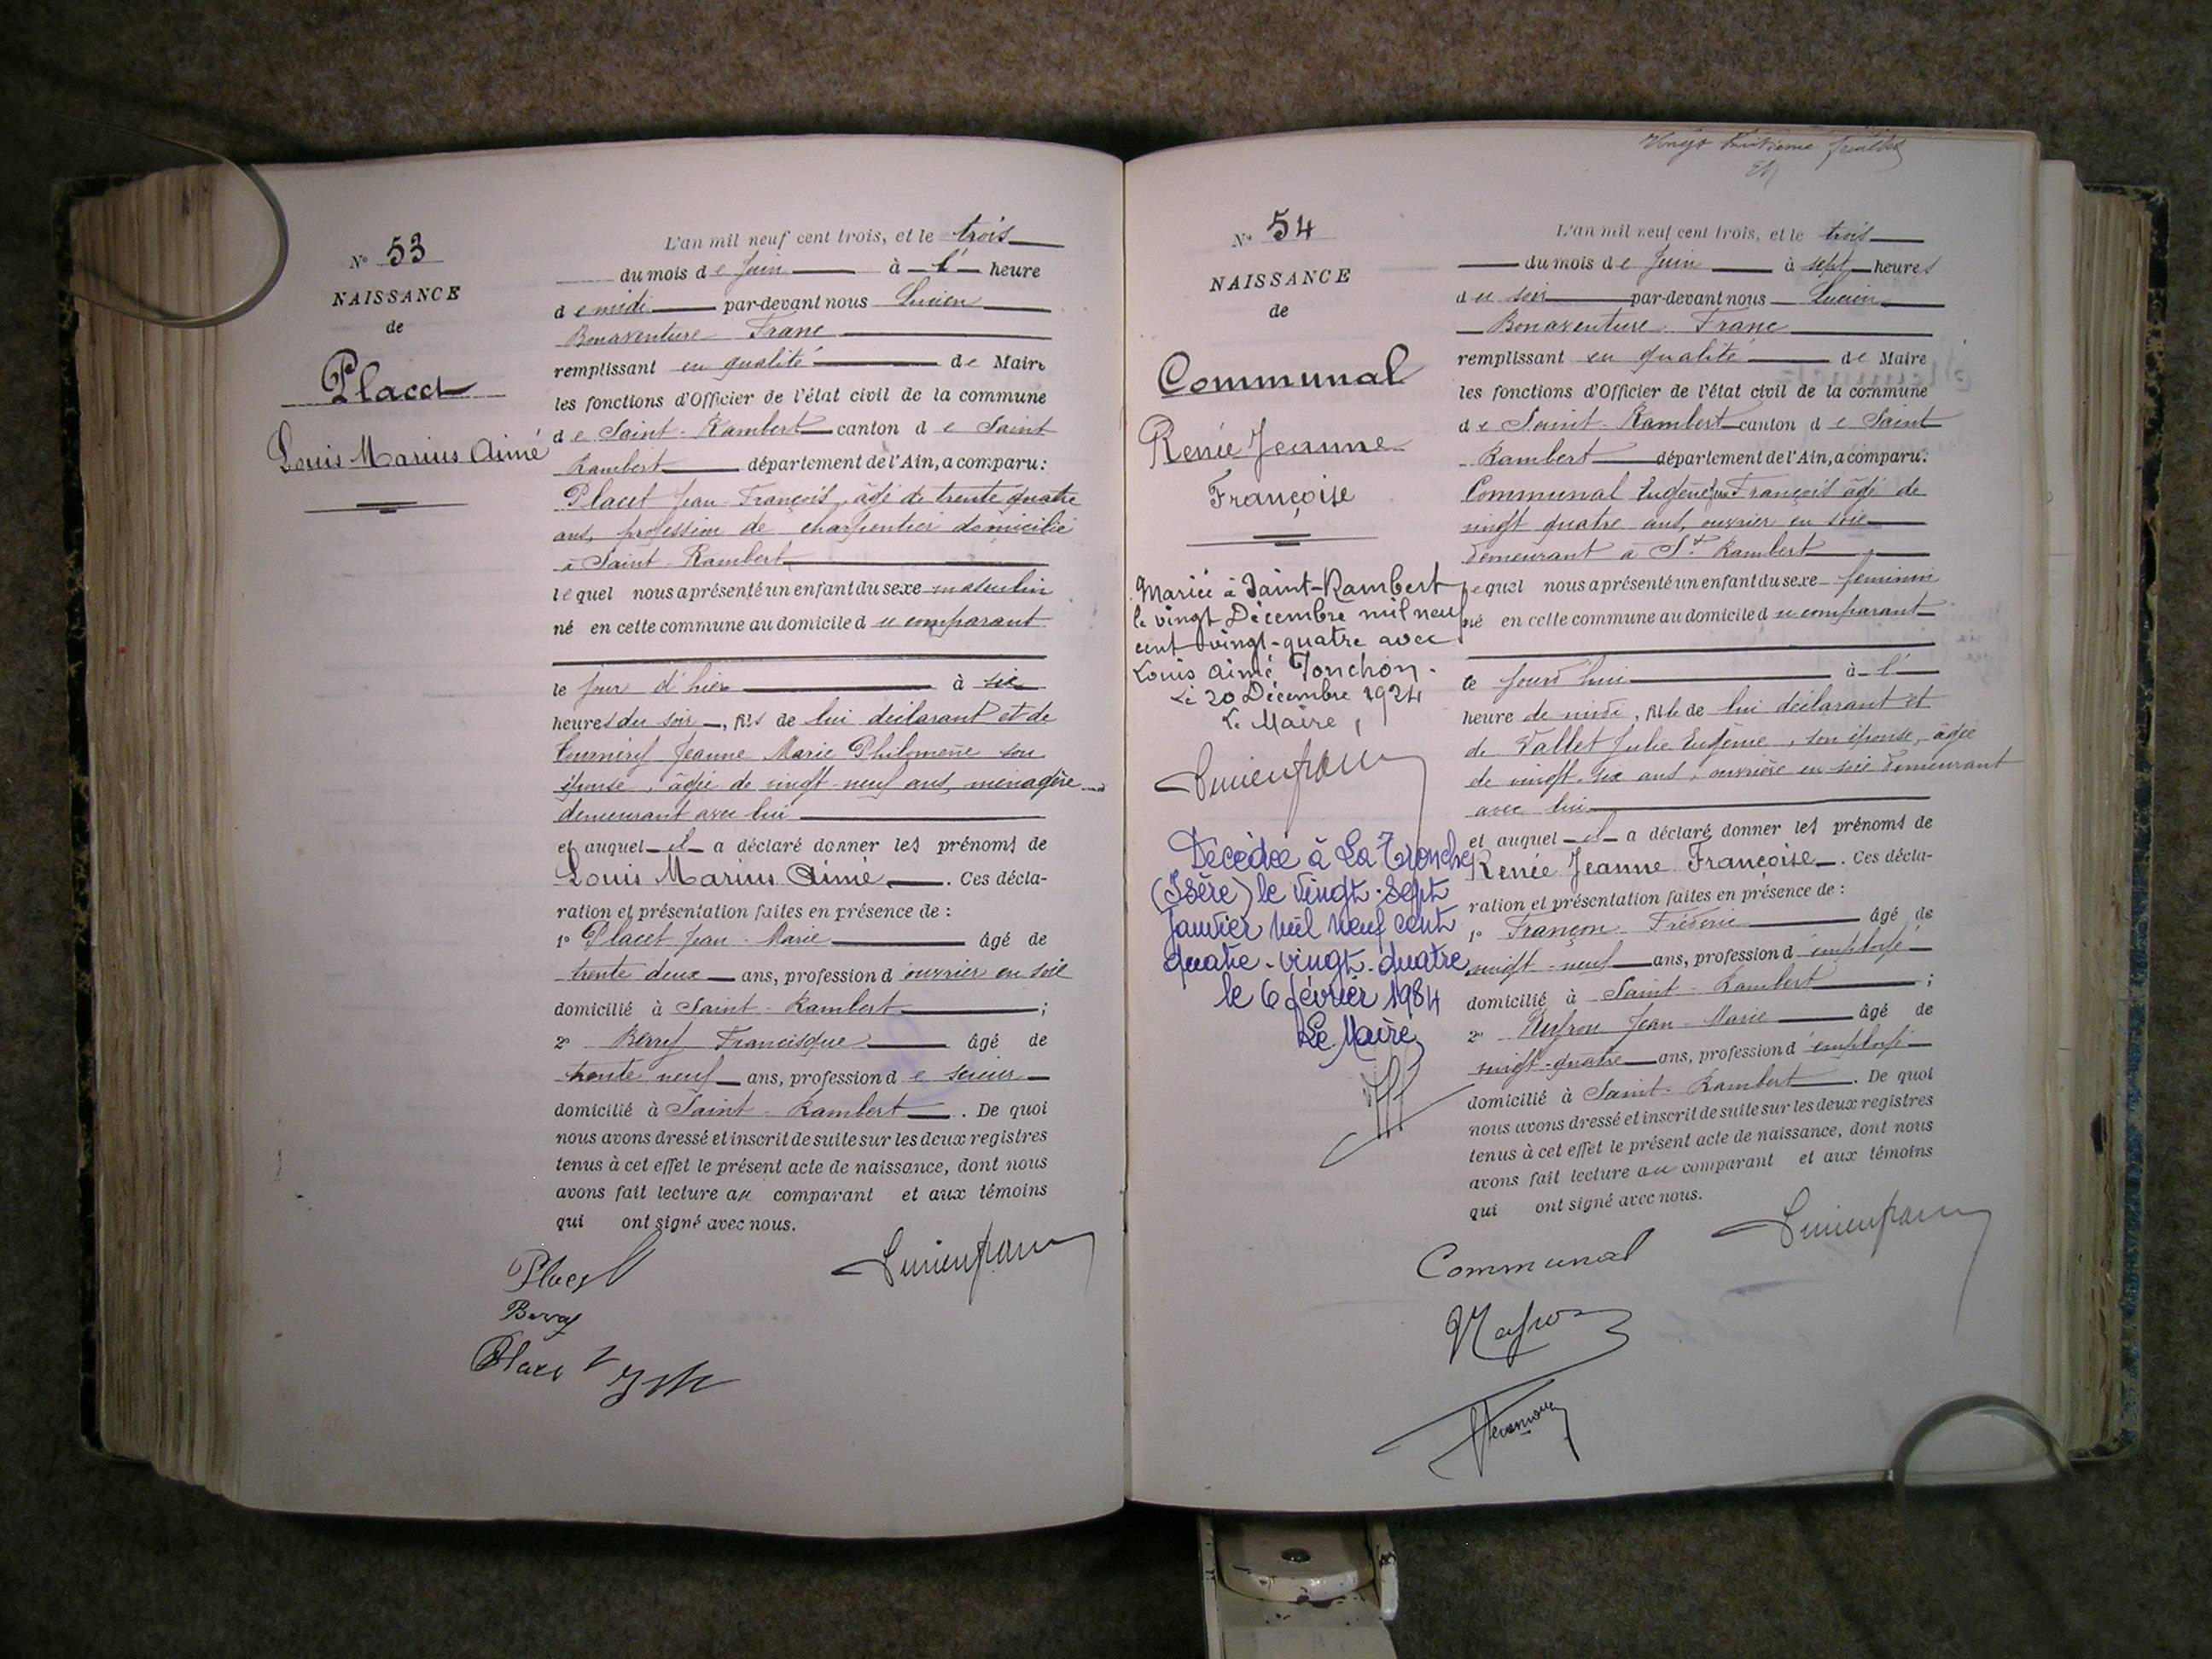 N° 53
NAISSANCE
de
Placet
Louis Marius Aimé
L'an mil neuf cent trois, et le trois
du mois de Juin à l' heure
de midi par-devant nous Lucien
Bonaventure Franc
remplissant en qualité de Maire
les fonctions d'Officier de l'état civil de la commune
de Saint-Rambert canton de Saint
Rambert département de l'Ain, a comparu:
Placet Jean-François, âgé de trente quatre
ans, profession de charpentier domicilié
à Saint-Rambert
lequel nous a présenté un enfant du sexe masculin
né en cette commune au domicile du comparant
le jour d'hier à six
heures du soir, fils de lui déclarant et de
Jeanne Marie Philomène son
épouse, âgée de vingt-neuf ans, ménagère
demeurant avec lui
et auquel il a déclaré donner les prénoms de
Louis Marius Aimé. Ces décla-
ration et présentation faites en présence de :
1° Placet Jean-Marie âgé de
trente deux ans, profession d'ouvrier en soie
domicilié à Saint-Rambert ;
2° Berry Francisque âgé de
trente neuf ans, profession de
domicilié à Saint-Rambert. De quoi
nous avons dressé et inscrit de suite sur les deux registres
tenus à cet effet le présent acte de naissance, dont nous
avons fait lecture au comparant et aux témoins
qui ont signé avec nous.
Placet
Lucien franc
Berry
Placet
Vingt huitième feuillet
N° 54
NAISSANCE
de
Communal
Renée Jeanne
Françoise
Mariée à Saint-Rambert
le vingt Décembre mil neuf
cent vingt-quatre avec
Louis Aimé Tonchon.
Le 20 Décembre 1924
Le Maire,
Lucien franc
Décédée à La Tronche
(Isère) le vingt-sept
janvier mil neuf cent
quatre-vingt-quatre
le 6 février 1984
Le Maire,
L'an mil neuf cent trois, et le trois
du mois de Juin à sept heures
du soir par-devant nous Lucien
Bonaventure Franc
remplissant en qualité de Maire
les fonctions d'Officier de l'état civil de la commune
de Saint-Rambert canton de Saint
Rambert département de l'Ain, a comparu:
Communal Eugène François âgé de
vingt quatre ans, ouvrier en soie
demeurant à St Rambert
lequel nous a présenté un enfant du sexe féminin
né en cette commune au domicile du comparant
ce jourd'hui à l'
heure de midi, fille de lui déclarant et
de Vallet Julie Eugénie, son épouse, âgée
de vingt-six ans, ouvrière en soie demeurant
avec lui
et auquel il a déclaré donner les prénoms de
Renée Jeanne Françoise. Ces décla-
ration et présentation faites en présence de :
1° Françon Frédéric âgé de
vingt-neuf ans, profession d'employé
domicilié à Saint-Rambert ;
2° Jean-Marie âgé de
vingt-quatre ans, profession d'employé
domicilié à Saint-Rambert. De quoi
nous avons dressé et inscrit de suite sur les deux registres
tenus à cet effet le présent acte de naissance, dont nous
avons fait lecture au comparant et aux témoins
qui ont signé avec nous.
Communal
Lucien franc